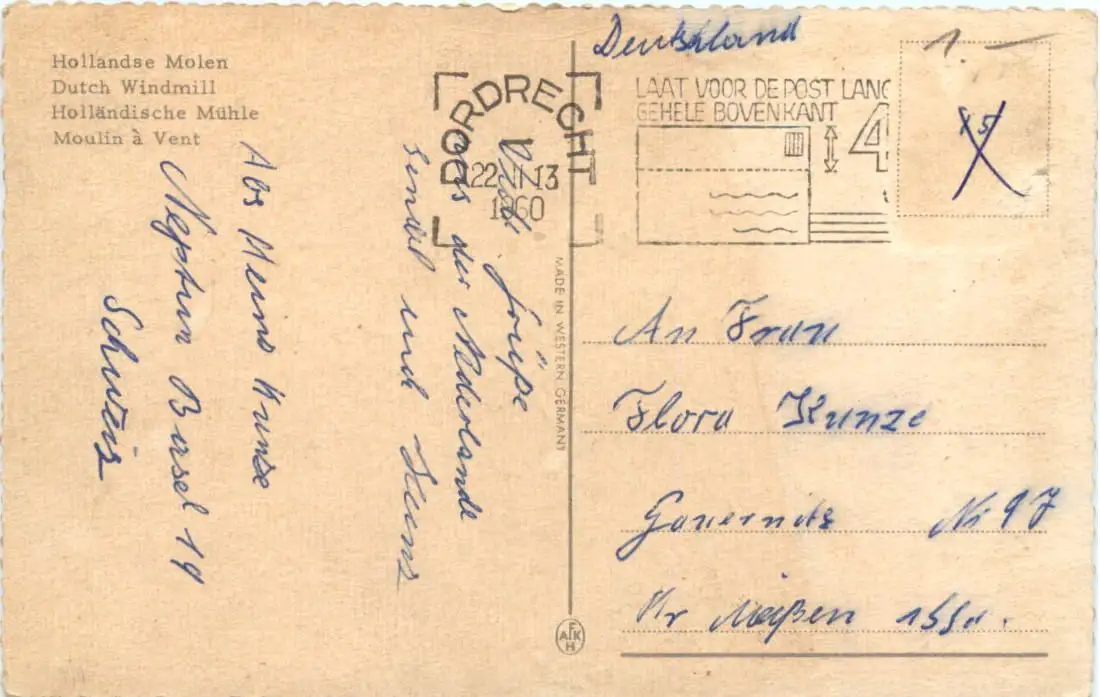 Hollandse Molen
Dutch Windmill
Holländische Mühle
Moulin à Vent
Abs Heinz Kunze
Neptun Basel 19
Schweiz
Viele Grüße
aus der Nederlande
sendet und Heinz
MADE IN WESTERN GERMANY
AFKH
DORDRECHT
22 II 13
1960
LAAT VOOR DE POST LANG
GEHELE BOVENKANT
4
Deutschland
1.—
x5
An Frau
Flora Kunze
Gauernitz Nr 97
Kr Meißen